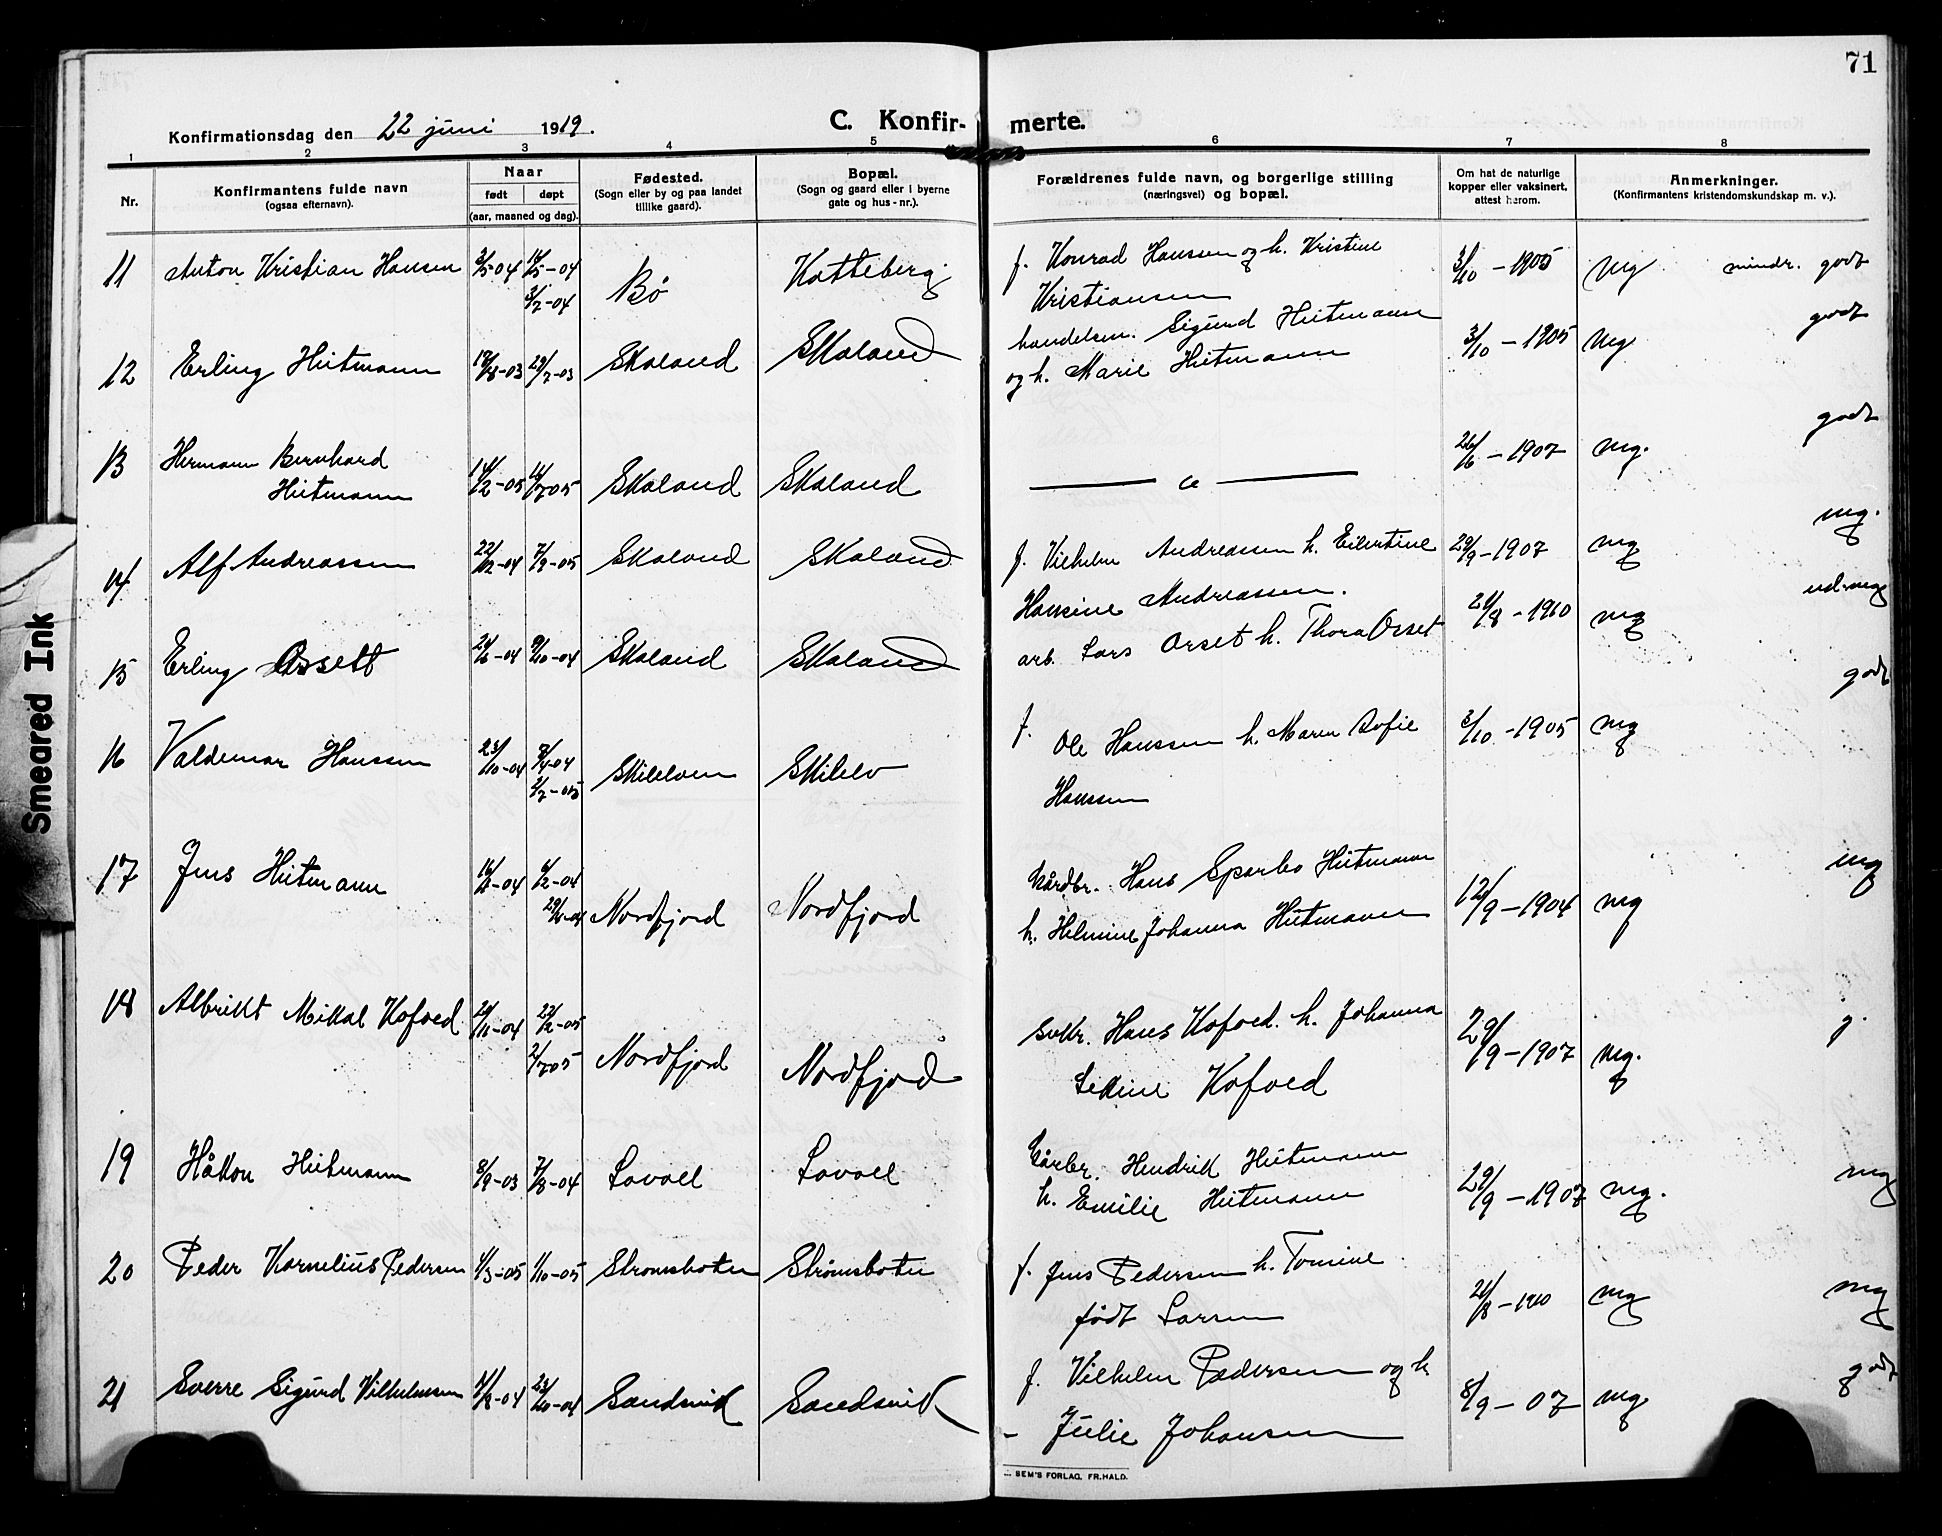 71
Konfirmationsdag den 22 juni 1919.
C. Konfir- merte.
1 2 3 4 5 6 7 8
Nr.
Konfirmantens fulde navn
(ogsaa efternavn).
Naar
født døpt
(aar, maaned og dag).
Fødested.
(Sogn eller by og paa landet
tillike gaard).
Bopæl.
(Sogn og gaard eller i byerne
gate og hus-nr.).
Forældrenes fulde navn, og borgerlige stilling
(næringsvei) og bopæl.
Om hat de naturlige
kopper eller vaksinert,
attest herom.
Anmerkninger.
(Konfirmantens kristendomskundskap m. v.).
11 Anton Kristian Hansen 3/5-04 14/5-04 Bø Kotteberg f. Konrad Hanssen og h. Kristine 3/10-1905 mg mindr. godt
3/7-04 Kristiansen
12 Erling Hutmann 17/8-03 Skaland Skaland handelsm. Sigurd Hutmann 3/10-1905 mg godt
og h. Marie Hutmann
13 Hermann Bernhard
Hutmann 14/2-05 14/705 Skaland Skaland 26/6-1907 mg. godt
14 Alf Andreassen 22/12-04 7/9-05 Skaland Skaland f. Vilhelm Andreassen h. Eilertine 29/9-1907 mg mg.
Hansine Andreassen.
15 Erling Orsett 24/6-04 9/10-04 Skaland Skaland arb. Lars Orset h. Thora Orset 21/8-1910 mg ud.mg
16 Valdemar Hanssen 23/10-04 Skilelven Skilelv f. Ole Hanssen h. Maren Sofie 3/10-1905 mg godt
2/7-05 Hanssen
17 Jens Hutmann Nordfjord Nordfjord Gårdbr. Hans Sparbo Hutmann 12/9-1904 mg mg
h. Helmine Johanna Hutmann
18 Albrikt Mikal Kofoed 20/11-04 22/2-05 Nordfjord Nordfjord Hans Kofoed. h. Johanna 29/9-1907 mg. g.
2/705 Kofoed
19 Håkon Hutmann 8/9-03 7/8-04 Lavoll Lavoll Gårbr. Hendrik Hutmann 29/9-1907 mg. mg
h. Emilie Hutmann
20 Peder Kornelius Pedersen 4/3-05 1/10-05 Strømsboten Strømsboten f. Jens Pedersen h. Tomine 21/8-1910 mg mg
født Larsen
21 Sverre Sigurd Vilhelmsen 7/8-04 23/10-04 Sandsvik Sandsvik f. Vilhelm Pedersen og h 8/9-07 mg godt
- Julie Johansen
SEM'S FORLAG, FR.HALD.
Smeared Ink